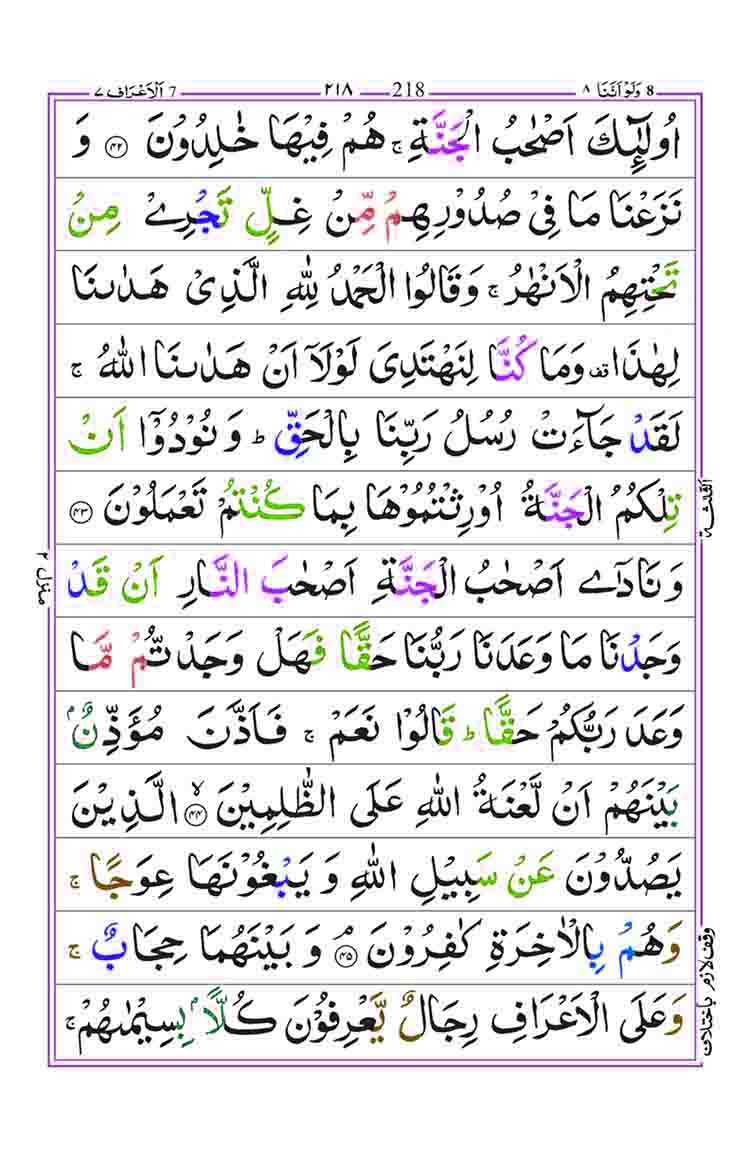 8 وَلَوْ اَنَّنَا ٨ 218 ٢١٨ 7 اَلْاَعْرَاف ٧
اُولٰٓئِكَ اَصْحٰبُ الْجَنَّةِ ۚ هُمْ فِيْهَا خٰلِدُوْنَ ﴿۴۲﴾ وَ
نَزَعْنَا مَا فِىْ صُدُوْرِهِمْ مِّنْ غِلٍّ تَجْرِىْ مِنْ
تَحْتِهِمُ الْاَنْهٰرُ ۚ وَقَالُوا الْحَمْدُ لِلّٰهِ الَّذِىْ هَدٰٮنَا
لِهٰذَا قف وَمَا كُنَّا لِنَهْتَدِىَ لَوْلَاۤ اَنْ هَدٰٮنَا اللّٰهُ ۚ
لَقَدْ جَآءَتْ رُسُلُ رَبِّنَا بِالْحَقِّ ؕ وَنُوْدُوْۤا اَنْ
تِلْكُمُ الْجَنَّةُ اُوْرِثْتُمُوْهَا بِمَا كُنْتُمْ تَعْمَلُوْنَ ﴿۴۳﴾
وَنَادٰٓى اَصْحٰبُ الْجَنَّةِ اَصْحٰبَ النَّارِ اَنْ قَدْ
وَجَدْنَا مَا وَعَدَنَا رَبُّنَا حَقًّا فَهَلْ وَجَدْتُّمْ مَّا
وَعَدَ رَبُّكُمْ حَقًّا ؕ قَالُوْا نَعَمْ ۚ فَاَذَّنَ مُؤَذِّنٌۢ
بَيْنَهُمْ اَنْ لَّعْنَةُ اللّٰهِ عَلَى الظّٰلِمِيْنَ ﴿۴۴﴾ۙ الَّذِيْنَ
يَصُدُّوْنَ عَنْ سَبِيْلِ اللّٰهِ وَ يَبْغُوْنَهَا عِوَجًا ۚ
وَهُمْ بِالْاٰخِرَةِ كٰفِرُوْنَ ﴿۴۵﴾ۘ وَ بَيْنَهُمَا حِجَابٌ ۚ
وَعَلَى الْاَعْرَافِ رِجَالٌ يَّعْرِفُوْنَ كُلًّاۢ بِسِيْمٰٮهُمْ ۚ
الثلثة
منزل ۲
وقف لازم باختلاف